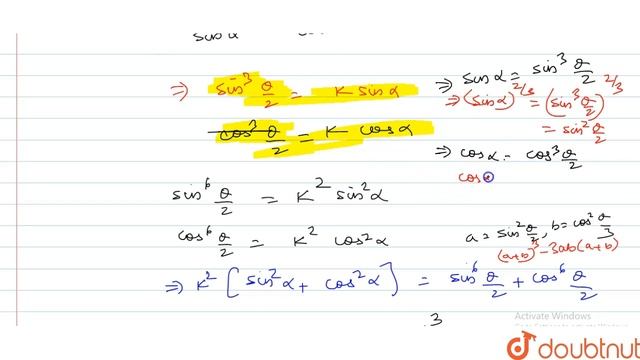 sin α cos
⇒ sin³ θ/2 = K sin α
cos³ θ/2 = K cos α
sin⁶ θ/2 = K² sin²α
cos⁶ θ/2 = K² cos²α
⇒ K² [ sin²α + cos²α ] = sin⁶ θ/2 + cos⁶ θ/2
3
⇒ sin α = sin³ θ/2
⇒ (sin α)^2/3 = (sin³ θ/2)^2/3
= sin² θ/2
⇒ cos α = cos³ θ/2
cos
a = sin² θ/2, b = cos² θ/3
(a+b)³ - 3ab(a+b)
Activate Windows
doubtnut